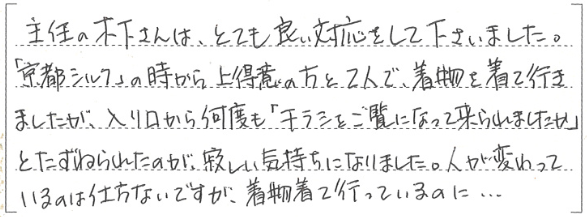 主任の木下さんは、とても良い対応をして下さいました。
「京都シルク」の時から上得意の方と2人で、着物を着て行き
ましたが、入り口から何度も「チラシをご覧になって来られましたか」
とたずねられたのが、寂しい気持ちになりました。人が変わって
いるのは仕方ないですが、着物着て行っているのに…